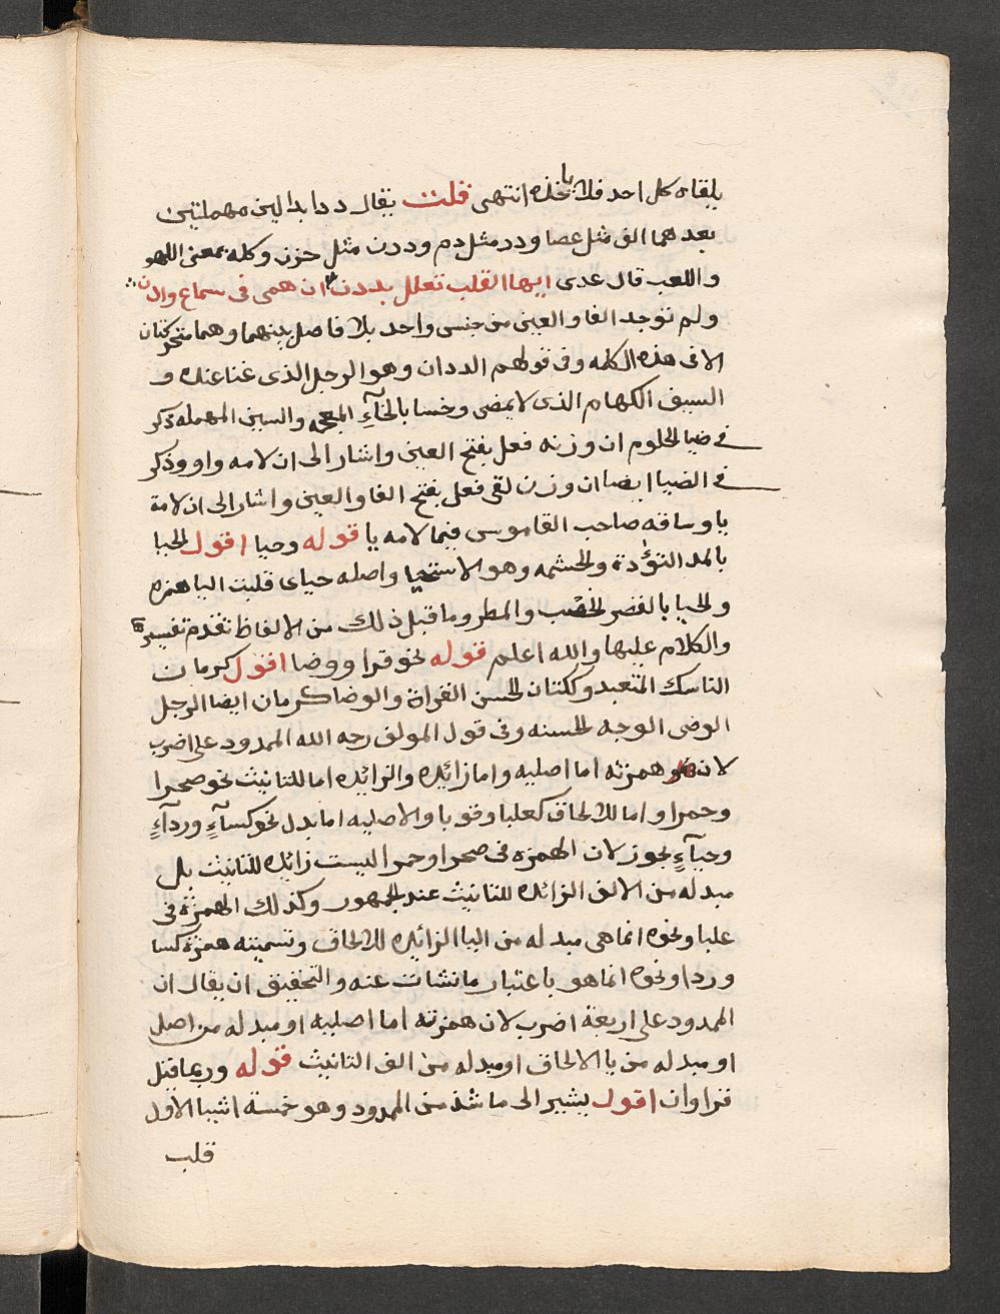 يلقاه كل احد فلا ياخذه انتهى قلت يقال ددا بدالين مهملتين
بعدهما الف مثل عصا ودد مثل دم وددن مثل حزن وكله بمعنى اللهو
واللعب قال عدى ايها القلب تعلل بددن ان همى فى سماع واذن
ولم توجد الفا والعين من جنس واحد بلا فاصل بينهما وهما متحركتان
الا فى هذه الكلمه وفى قولهم الددان وهو الرجل الذى غنا عنده و
السيف الكهام الذى لا يمضى وخسا بالخآءِ المعجمه والسين المهمله ذكر
فى ضيا الحلوم ان وزنه فعل بفتح العين واشار الى ان لامه واو وذكر
فى الضيا ايضا ان وزن لقى فعل بفتح الفا والعين واشار الى ان لامه
يا وساقه صاحب القاموس فيما لامه يا قوله وحيا اقول الحيا
بالمد التؤدة والحشمه وهو الاستحيا واصله حياى قلبت اليا همزه
والحيا بالقصر الخصب والمطر وما قبل ذلك من الالفاظ تقدم تفسيره
والكلام عليها والله اعلم قوله نحو قرا ووضا اقول كرمان
الناسك المتعبد وككتان الحسن القراة والوضا كرمان ايضا الرجل
الوضى الوجه الحسنه وفى قول المولف رحه الله الممدود على اضرب
لان همزته اما اصليه واما زائده والزائده اما للتانيث نحو صحرا
وحمرا واما للالحاق كعلبا وقوبا والاصليه اما بدل نحو كسآءٍ وردآءٍ
وحيآءٍ تجوز لان الهمزه فى صحرا وحمرا ليست زائده للتانيث بل
مبدله من الالف الزائده للتانيث عند الجمهور وكذلك الهمزة فى
علبا ونحوه انما هى مبدله من اليا الزائده للالحاق وتسميته همزة كسا
وردا ونحوه انما هو باعتبار ما نشات عنه والتحقيق ان يقال ان
الممدود على اربعة اضرب لان همزته اما اصليه او مبدله من اصل
او مبدله من يا الالحاق او مبدله من الف التانيث قوله وربما قيل
قراوان اقول يشير الى ما شذ من الممدود وهو خمسة اشيا الاول
قلب